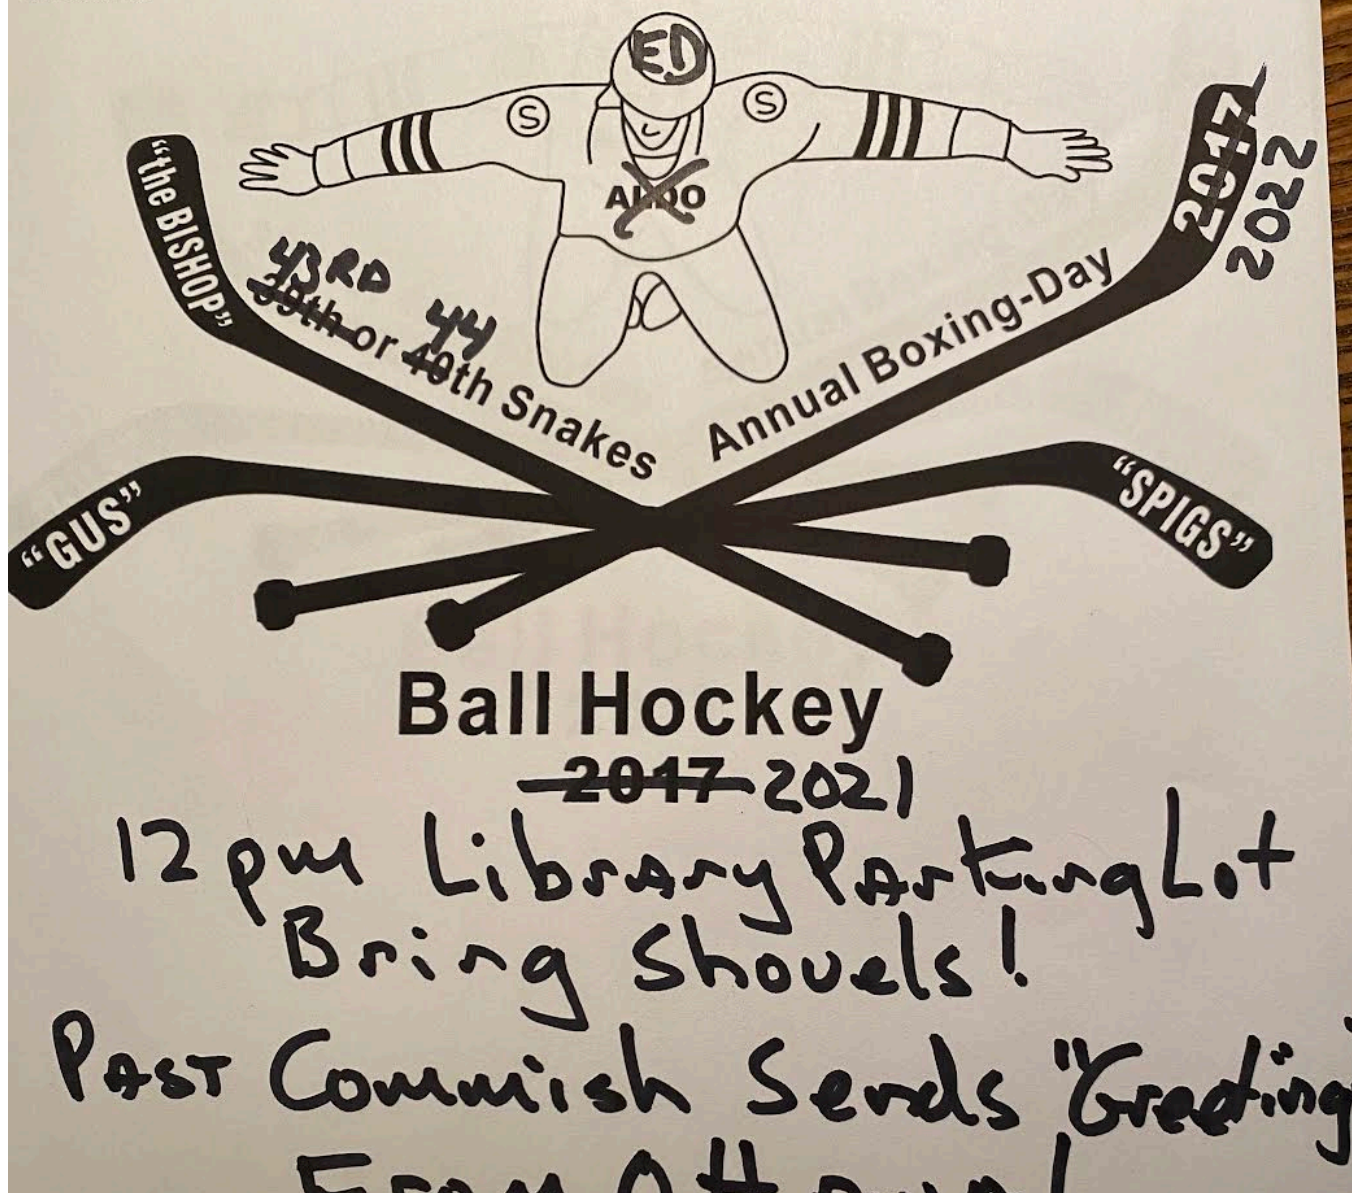 ED
S S
ALDO
"the BISHOP"
2017
2022
43RD 44
39th or 40th Snakes
Annual Boxing-Day
"GUS"
"SPIGS"
Ball Hockey
2017 2021
12 pm Library Parking Lot
Bring Shovels!
Past Commish Sends "Greeting
From Ottawa!